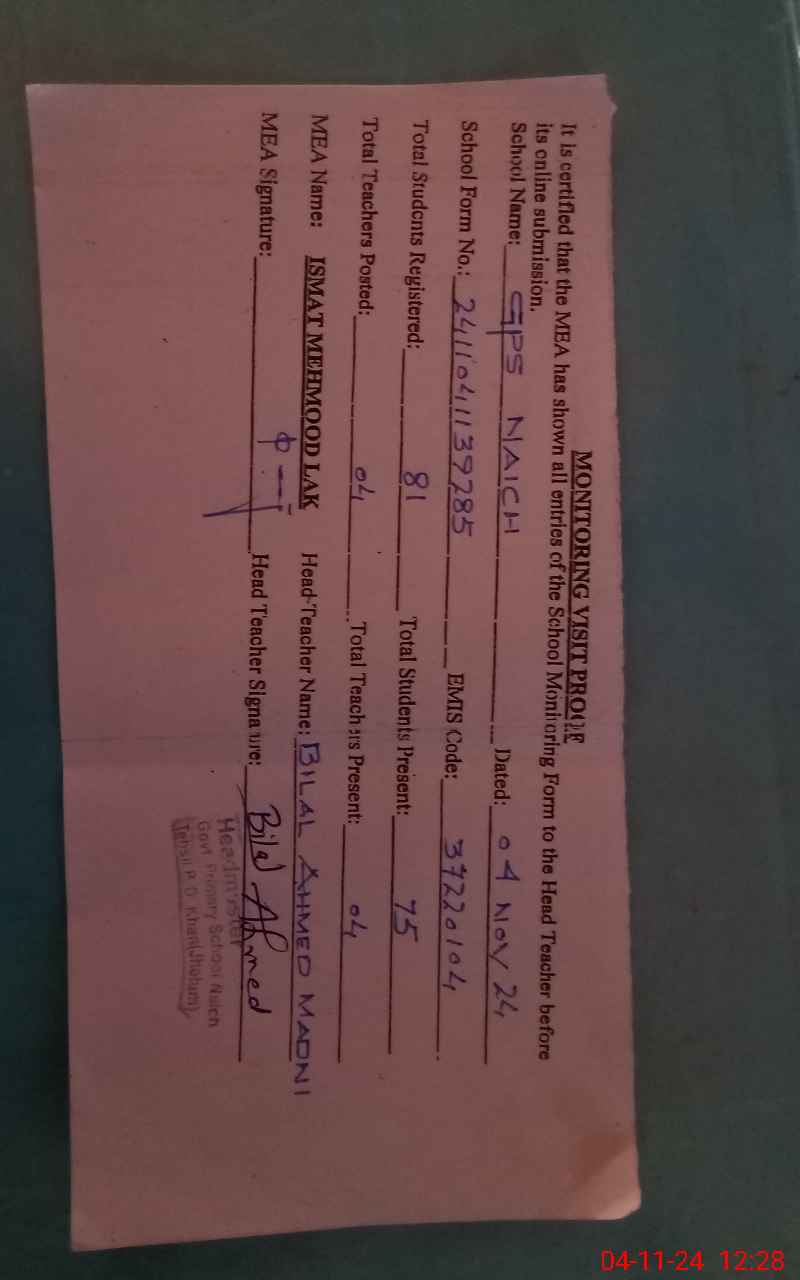 MONITORING VISIT PROOF
It is certified that the MEA has shown all entries of the School Monitoring Form to the Head Teacher before
its online submission.
School Name: GPS NAICH Dated: 04 NOV 24
School Form No.: 2411041139285 EMIS Code: 37220104
Total Students Registered: 81 Total Students Present: 75
Total Teachers Posted: 04 Total Teachers Present: 04
MEA Name: ISMAT MEHMOOD LAK Head Teacher Name: BILAL AHMED MADNI
MEA Signature: Head Teacher Signature: Bilal Ahmed
Headmaster
Govt Primary School Naich
Tehsil P. D. Khan (Jhelum)
04-11-24 12:28